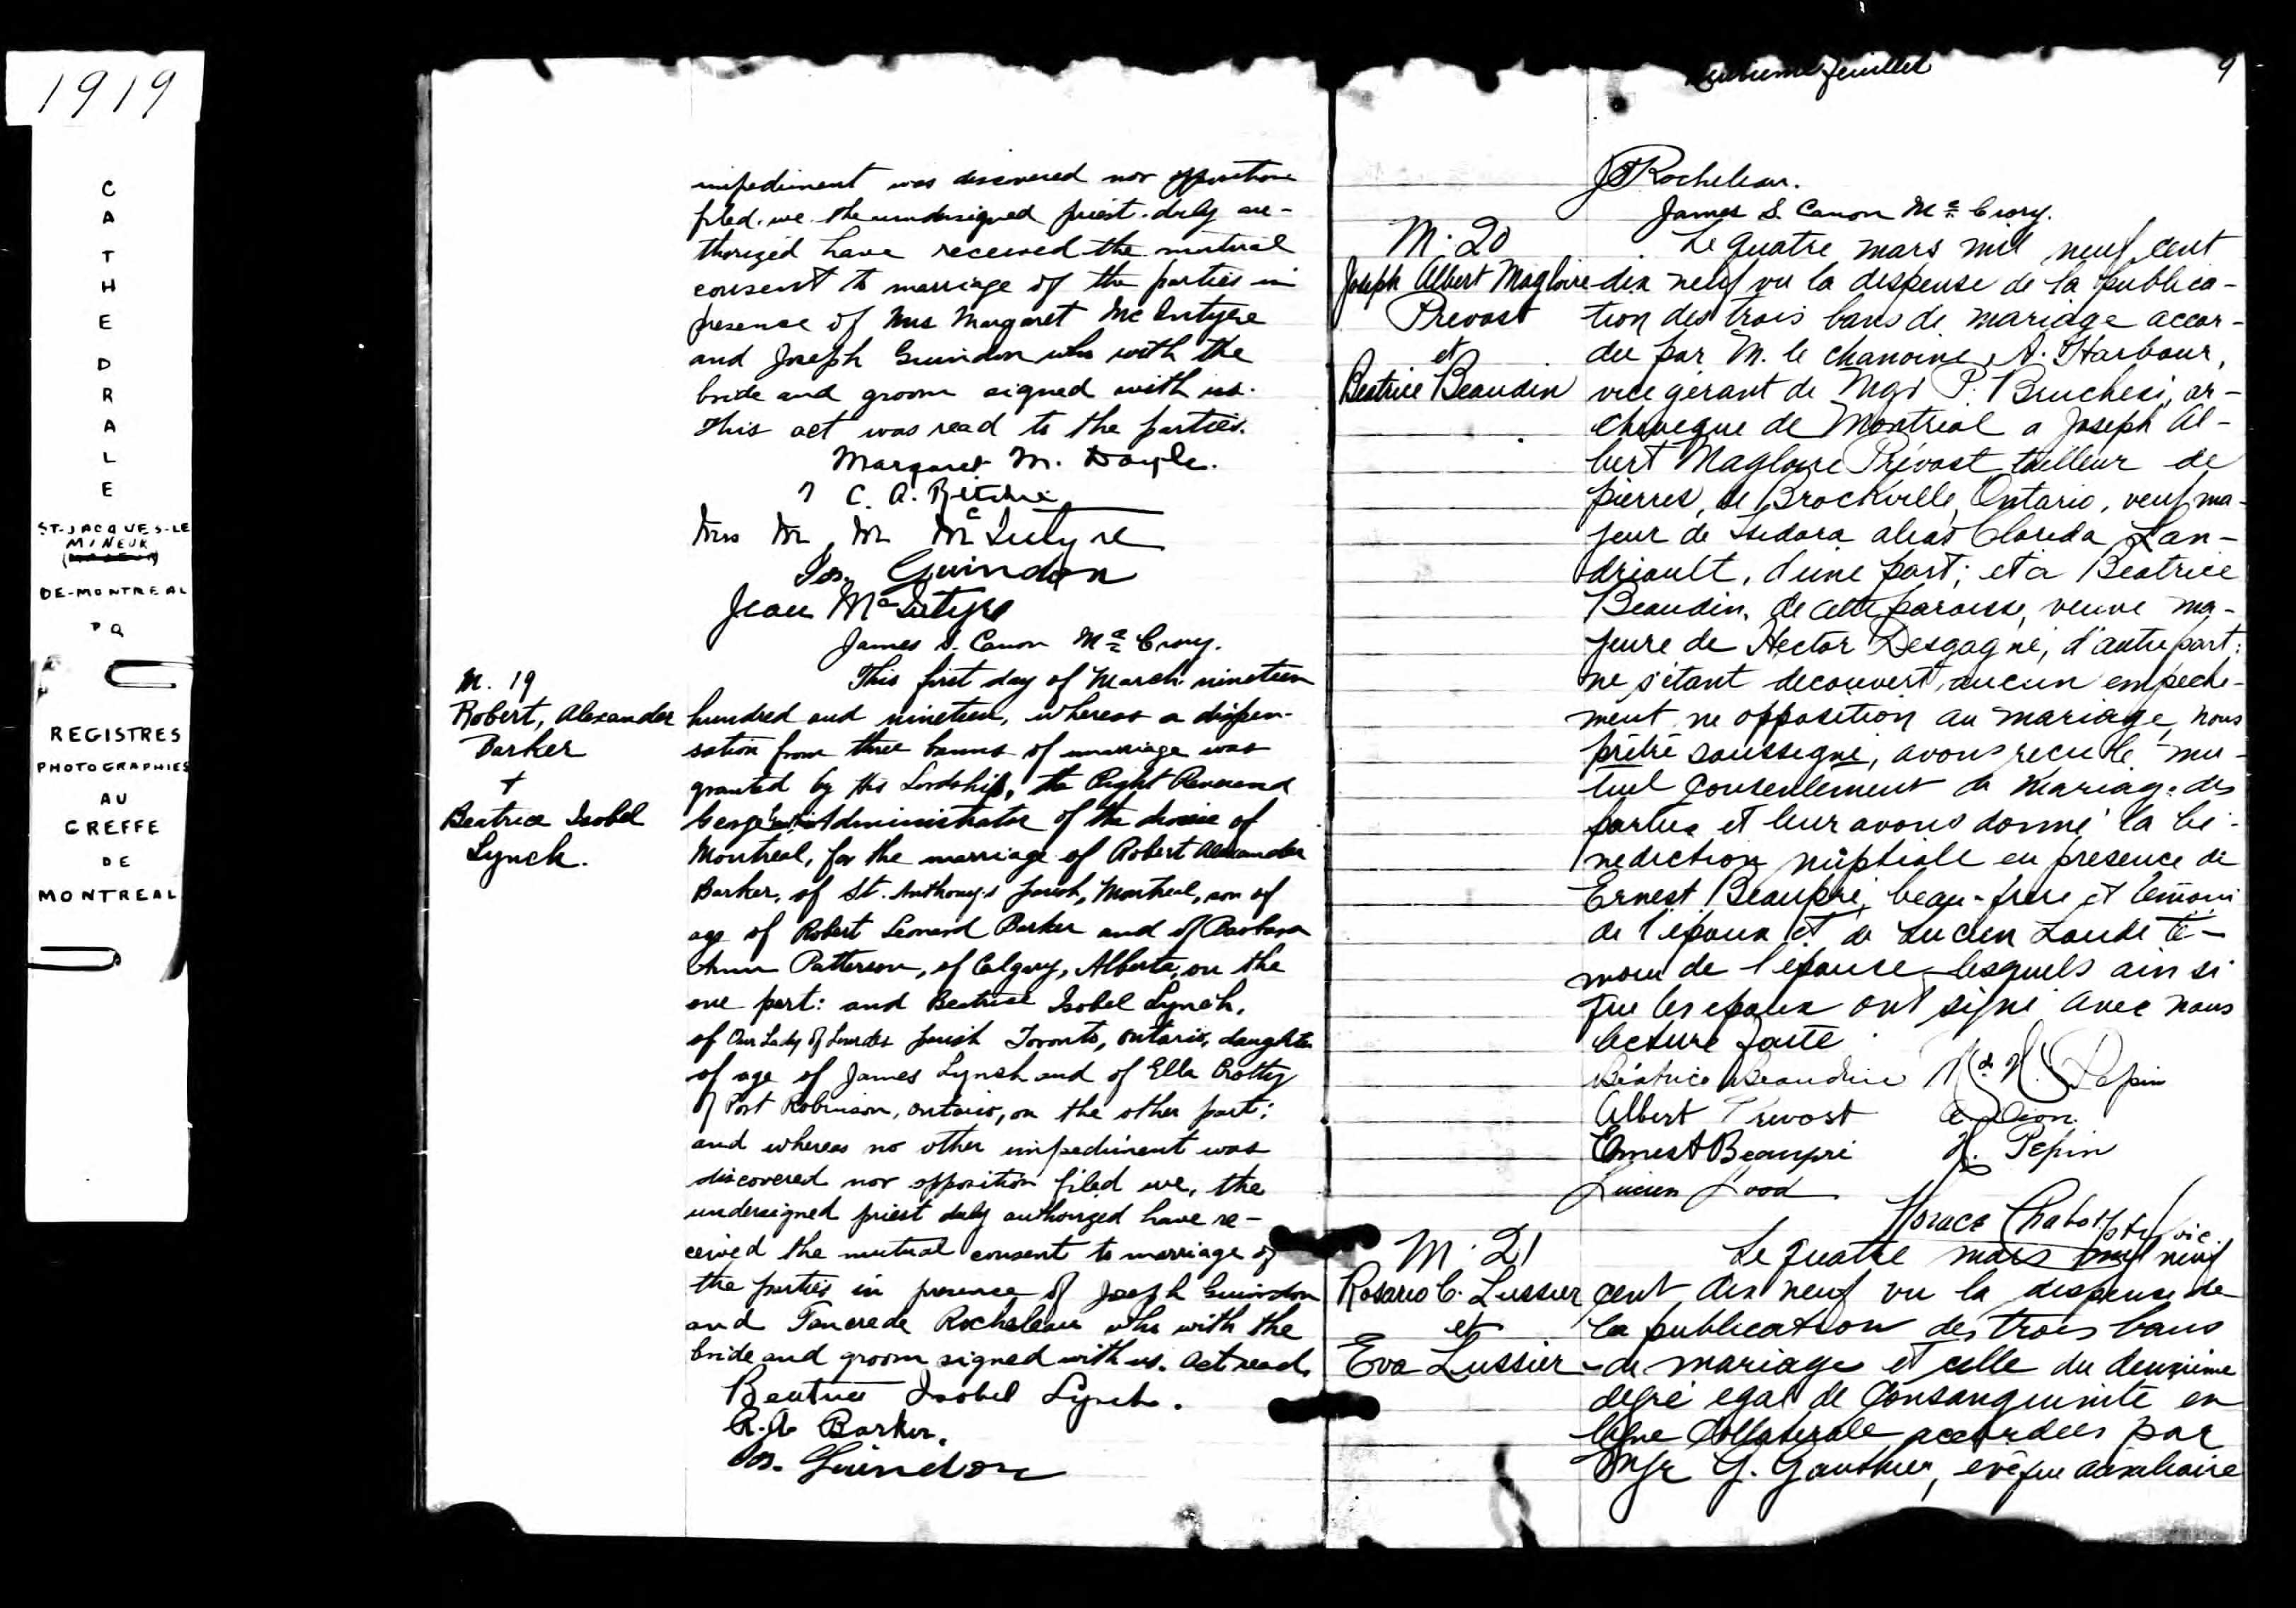 1919
CATHEDRALE
ST-JACQUES-LE
MINEUR
DE-MONTREAL
PQ
REGISTRES
PHOTOGRAPHIES
AU
GREFFE
DE
MONTREAL
impediment was discovered nor opposition
filed. we the undersigned priest. duly au-
thorized have received the mutual
consent to marriage of the parties in
presence of Mrs Margaret Mc Intyre
and Joseph Guindon who with the
bride and groom signed with us.
This act was read to the parties.
Margaret M. Doyle.
C. A. Ritchie
Mrs M. M. McIntyre
Jos. Guindon
Jean McIntyre
James S. Canon Mc Crory.
M. 19
Robert, Alexander
Barker
+
Beatrice Isobel
Lynch.
This first day of March nineteen
hundred and nineteen, whereas a dispen-
sation from three banns of marriage was
granted by His Lordship, the Right Reverend
George Administrator of the diocese of
Montreal, for the marriage of Robert Alexander
Barker, of St. Anthony's parish, Montreal, son of
age of Robert Leonard Barker and of Barbara
Ann Patterson, of Calgary, Alberta, on the
one part: and Beatrice Isobel Lynch,
of Our Lady of Lourdes parish Toronto, Ontario, daughter
of age of James Lynch and of Ella Crotty
of Port Robinson, Ontario, on the other part:
and whereas no other impediment was
discovered nor opposition filed we, the
undersigned priest duly authorized have re-
ceived the mutual consent to marriage of
the parties in presence of Joseph Guindon
and Tancrede Rocheleau who with the
bride and groom signed with us. Act read.
Beatrice Isobel Lynch.
R. A. Barker.
Jos. Guindon
feuillet
9
Rocheleau.
James S. Canon Mc Crory.
M. 20
Joseph Albert Magloire
Prevost
et
Beatrice Beaudin
Le quatre mars mil neuf cent
dix neuf vu la dispense de la publica-
tion des trois bans de mariage accor-
dee par M. le chanoine A. Harbour,
vice gérant de Mgr P. Bruchesi, ar-
cheveque de Montréal a Joseph Al-
bert Magloire Prévost tailleur de
pierres, de Brockville, Ontario, veuf ma-
jeur de Isidora alias Clorida Lan-
driault, d'une part; et a Beatrice
Beaudin, de cette paroisse, veuve ma-
jeure de Hector Desgagné, d'autre part:
ne s'étant decouvert aucun empeche-
ment ne opposition au mariage, nous
prêtre soussigné, avons recu le mu-
tuel consentement de mariage des
parties et leur avons donné la bé-
nediction nuptiale en presence de
Ernest Beaupré, beau-frère et témoin
de l'époux et de Lucien Laude té-
moin de l'epouse lesquels ainsi
que les epoux ont signé avec nous
lecture faite
Béatrice Beaudin
Pepin
Albert Prevost
Ernest Beaupré
H. Pepin
Lucien Lood
Horace Chabot ptre vic.
M. 21
Rosario C. Lussier
et
Eva Lussier
Le quatre mars mil neuf
cent dix neuf vu la dispense de
la publication des trois bans
de mariage et celle du deuxième
degré egal de consanguinité en
ligne collaterale accordees par
Mgr G. Gauthier, evêque auxiliaire